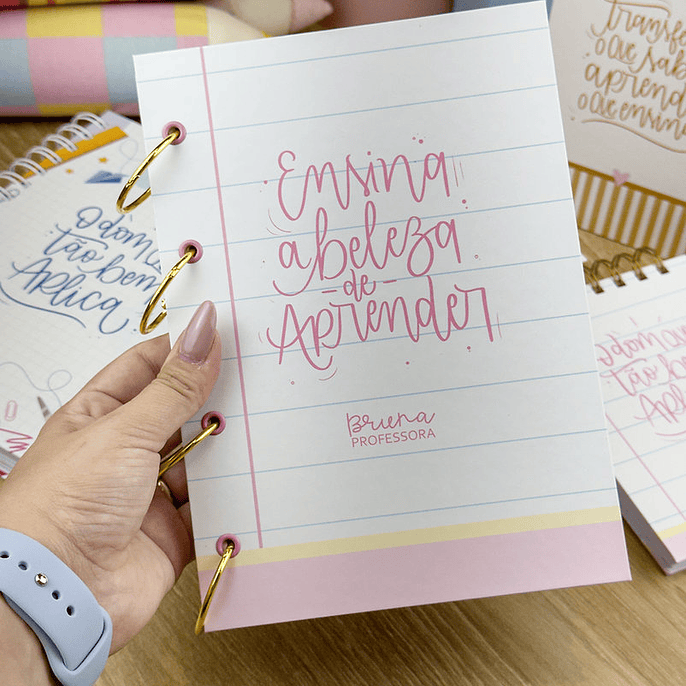 Ensina
a beleza
de
Aprender
Bruna
PROFESSORA
O dom
tão bem
Aplica
o que sab
aprend
o que ensin
O dom
tão be
Apli